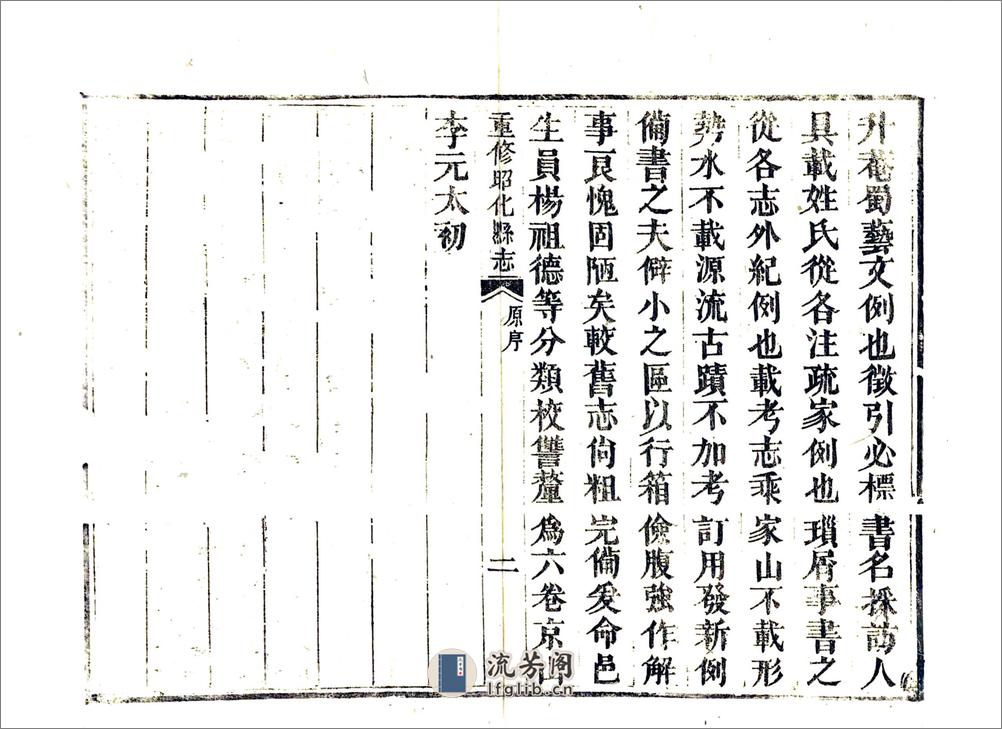 升菴蜀藝文例也徵引必標書名採訪人
具載姓氏從各注疏家例也瑣屑事書之
從各志外紀例也載考志乘家山不載形
勢水不載源流古蹟不加考訂用發新例
備書之夫僻小之區以行箱儉腹強作解
事良愧固陋矣較舊志尙粗完備爰命邑
生員楊祖德等分類校讐釐爲六卷京山
重修昭化縣志 原序 二
李元太初
流芳阁
lfglib.cn